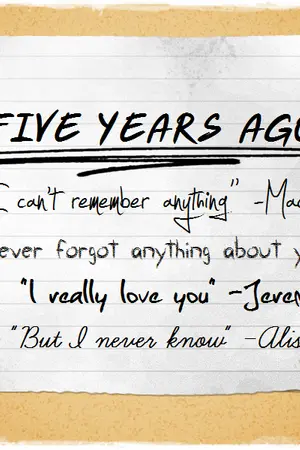 FIVE YEARS AGO
I can't remember anything" -Mad
ever forgot anything about y
"I really love you" -Jerem
"But I never know" -Alis